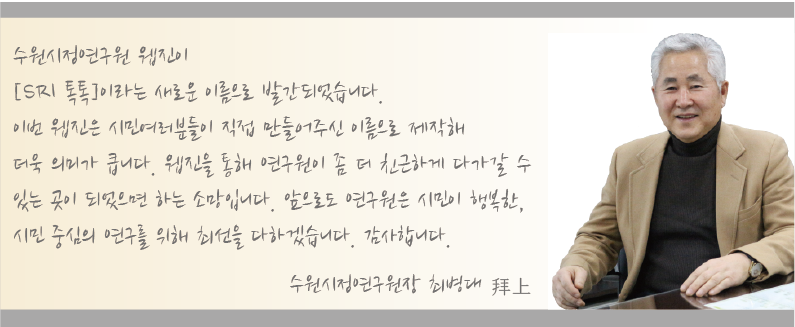 수원시정연구원 웹진이
[SRI 톡톡]이라는 새로운 이름으로 발간되었습니다.
이번 웹진은 시민여러분들이 직접 만들어주신 이름으로 제작해
더욱 의미가 큽니다. 웹진을 통해 연구원이 좀 더 친근하게 다가갈 수
있는 곳이 되었으면 하는 소망입니다. 앞으로도 연구원은 시민이 행복한,
시민 중심의 연구를 위해 최선을 다하겠습니다. 감사합니다.
수원시정연구원장 최병대 拜上